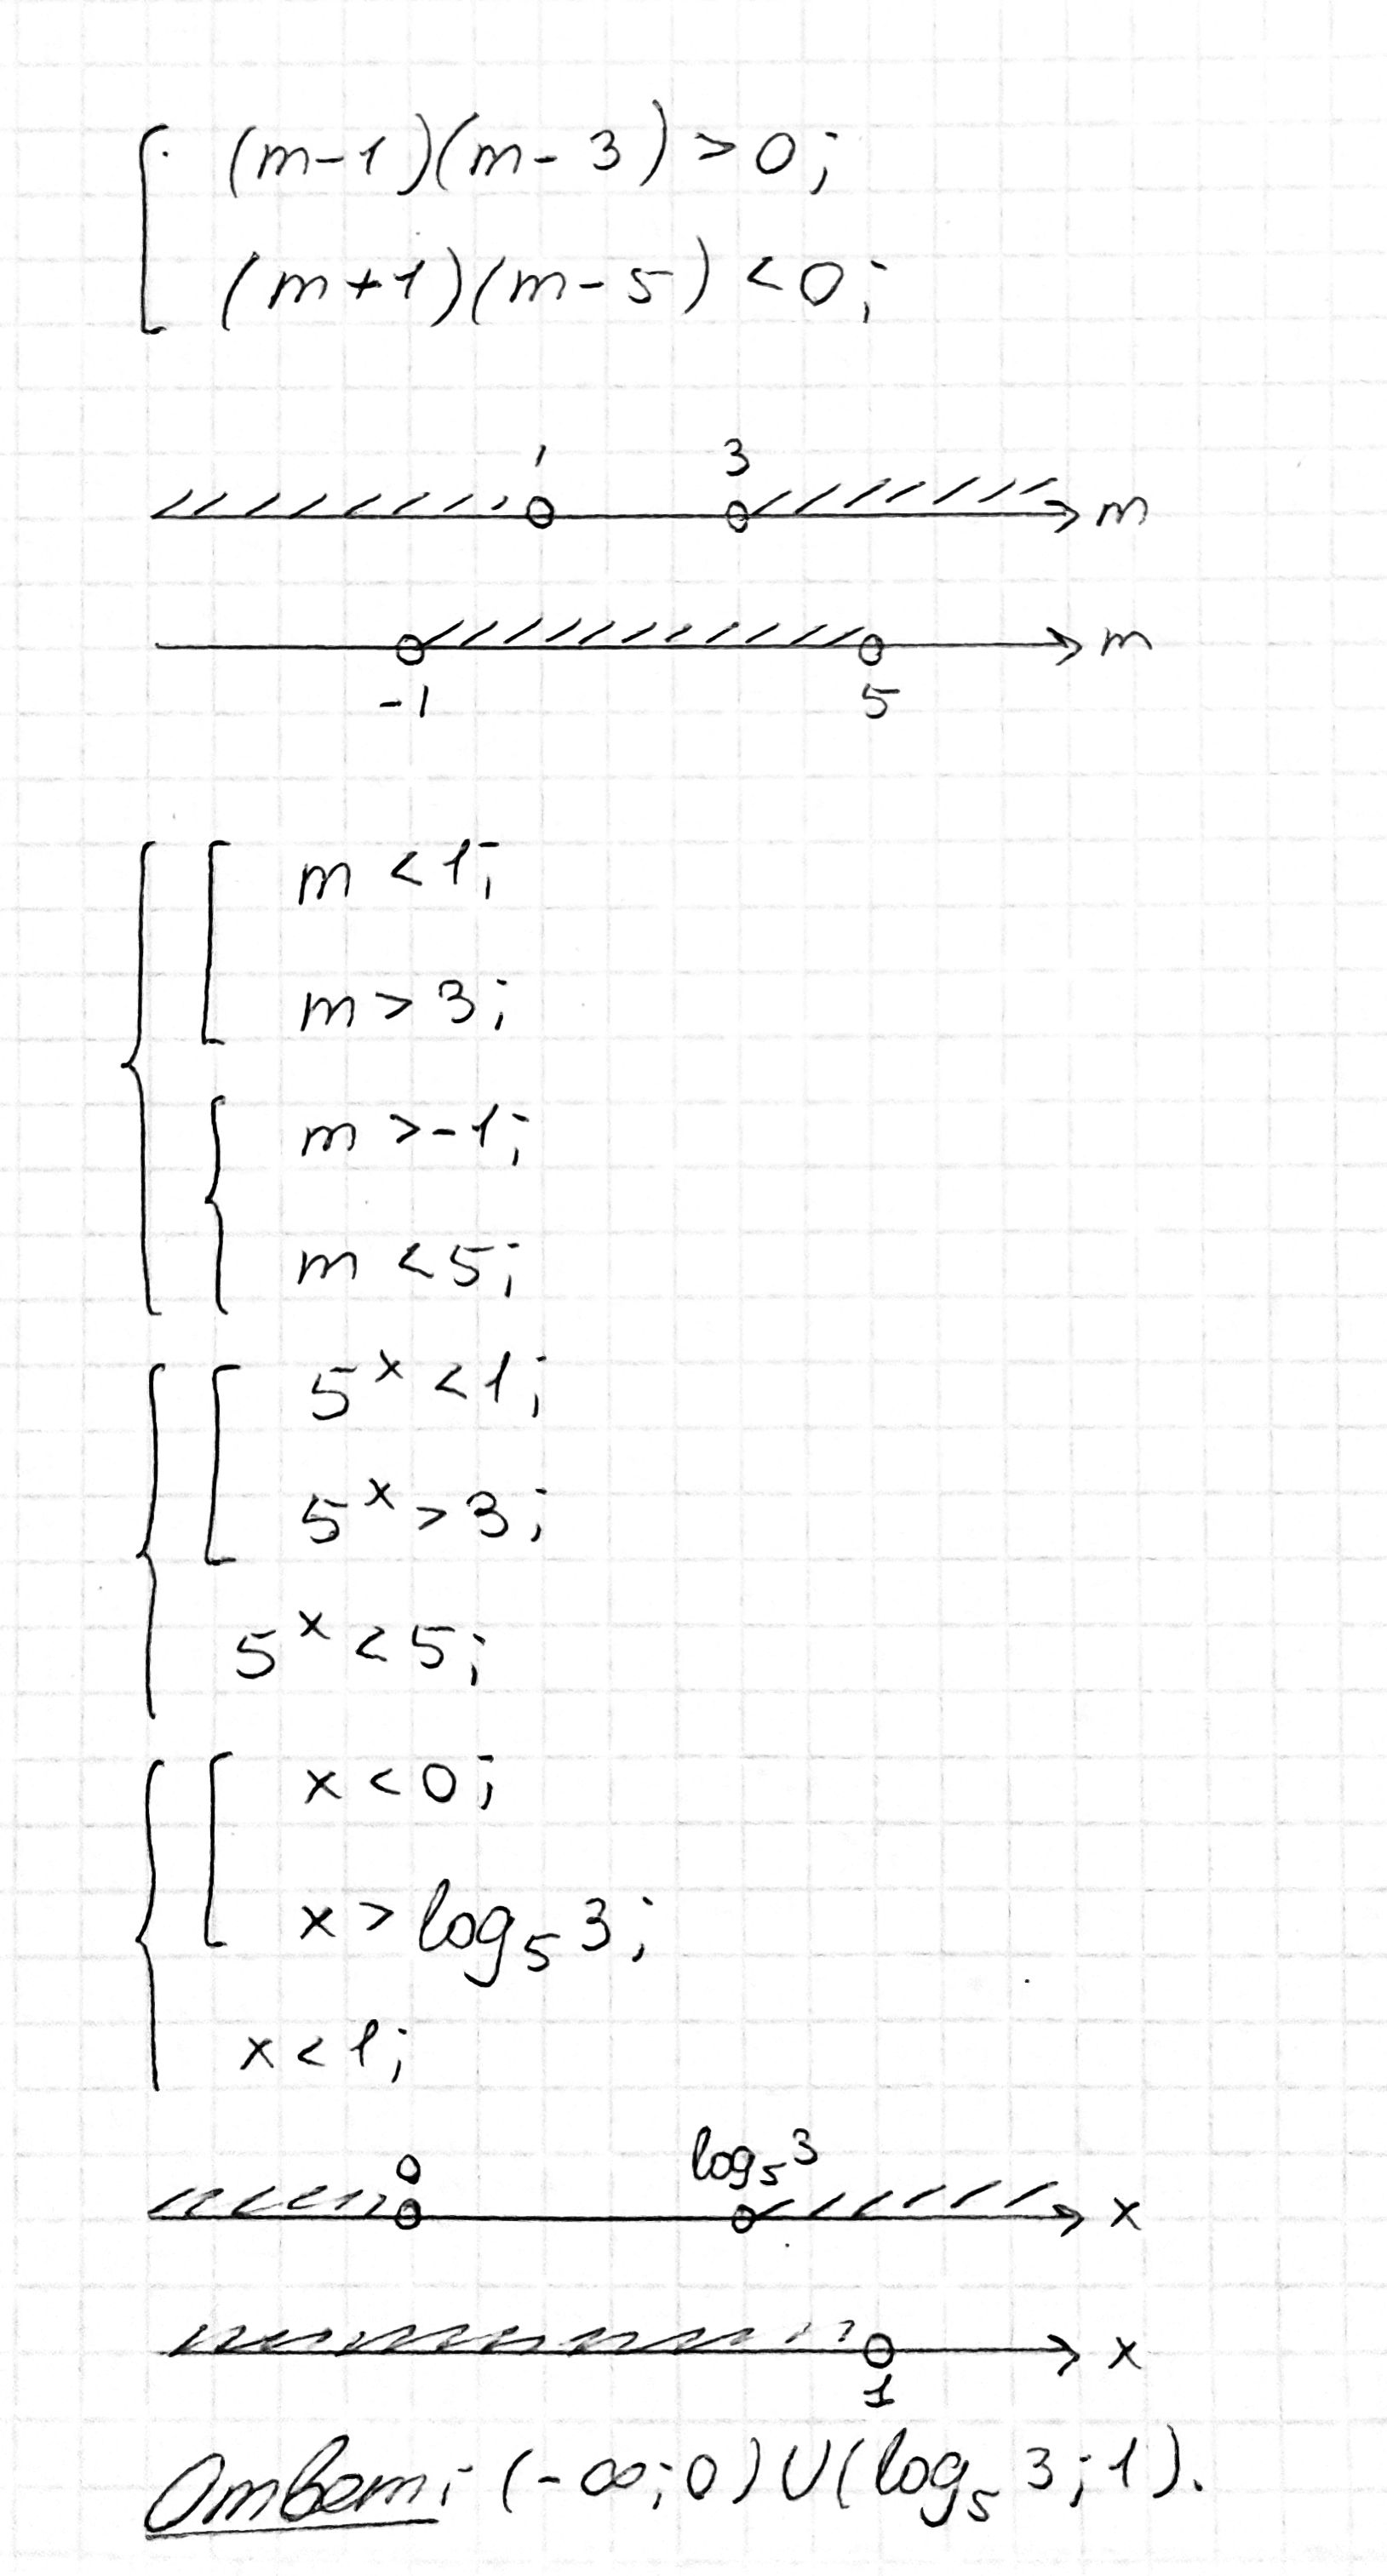 (m-1)(m-3) > 0;
(m+1)(m-5) < 0;
1 3
m
m
-1 5
m < 1;
m > 3;
m > -1;
m < 5;
5^x < 1;
5^x > 3;
5^x < 5;
x < 0;
x > log₅ 3;
x < 1;
0 log₅ 3
x
x
1
Ответ: (-∞; 0) ∪ (log₅ 3; 1).